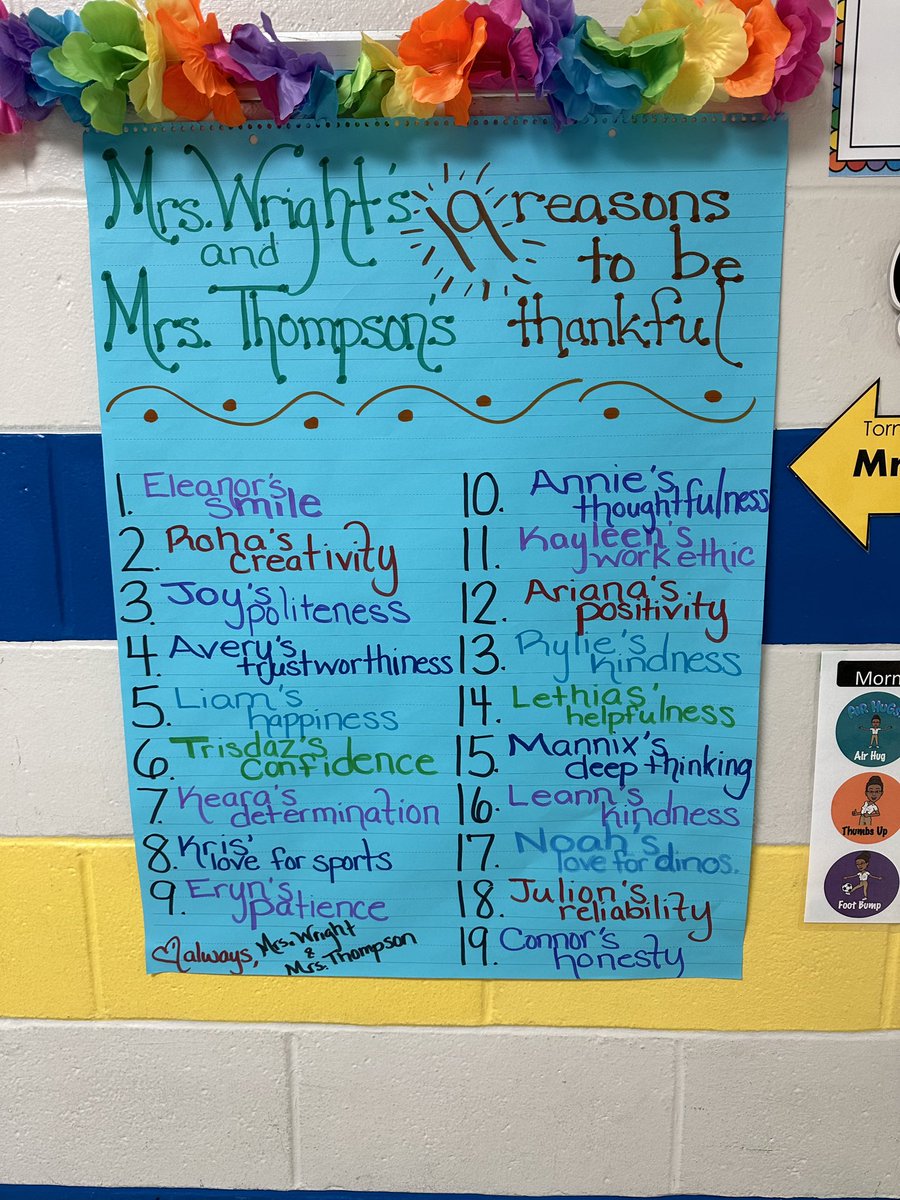 Mrs. Wright's
and
Mrs. Thompson's
19 reasons
to be
thankful
1. Eleanor's
smile
2. Roha's
creativity
3. Joy's
politeness
4. Avery's
trustworthiness
5. Liam's
happiness
6. Trisdaz's
confidence
7. Keara's
determination
8. Kris'
love for sports
9. Eryn's
patience
♡always, Mrs. Wright
&
Mrs. Thompson
10. Annie's
thoughtfulness
11. Kayleen's
work ethic
12. Ariana's
positivity
13. Rylie's
kindness
14. Lethias'
helpfulness
15. Mannix's
deep thinking
16. Leann's
kindness
17. Noah's
love for dinos.
18. Julion's
reliability
19. Connor's
honesty
Torn
Mr
Morn
AIR HUGS
Air Hug
Thumbs Up
Foot Bump